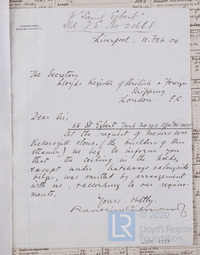 "Saint Egbert".
Liverpool, 11. Feb. 04
The Secretary
Lloyds Register of British & Foreign
Shipping
London E.C.
Dear Sir,
SS St Egbert
at the request of Messrs Wm
Pickersgill & Sons, (the builders of this
steamer) we beg to inform you
that the ceiling in the holds,
except under hatchways & alongside
bilges, was omitted by arrangement
with us, according to our require-
ments.
Yours faithfully
© 2020
Lloyd's Register
Foundation